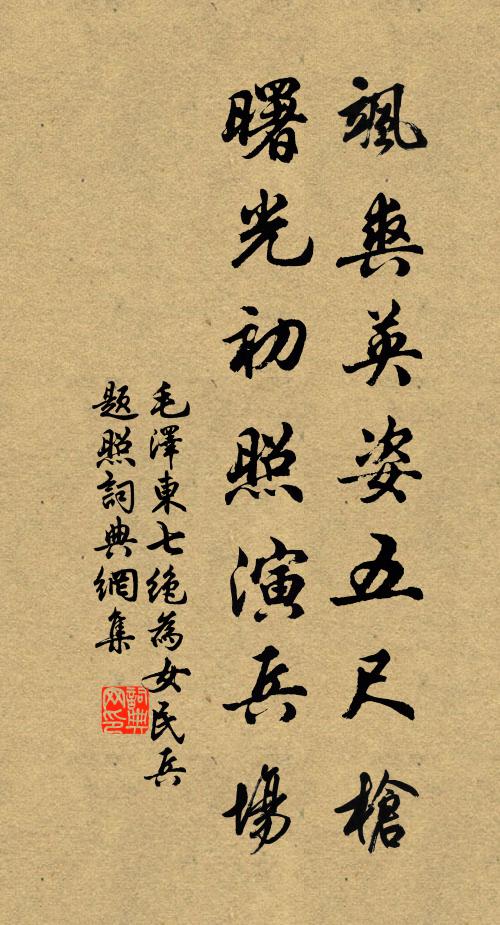 颯爽英姿五尺槍
曙光初照演兵場
毛澤東七绝為女民兵
题照詞典網集
詞典
网印